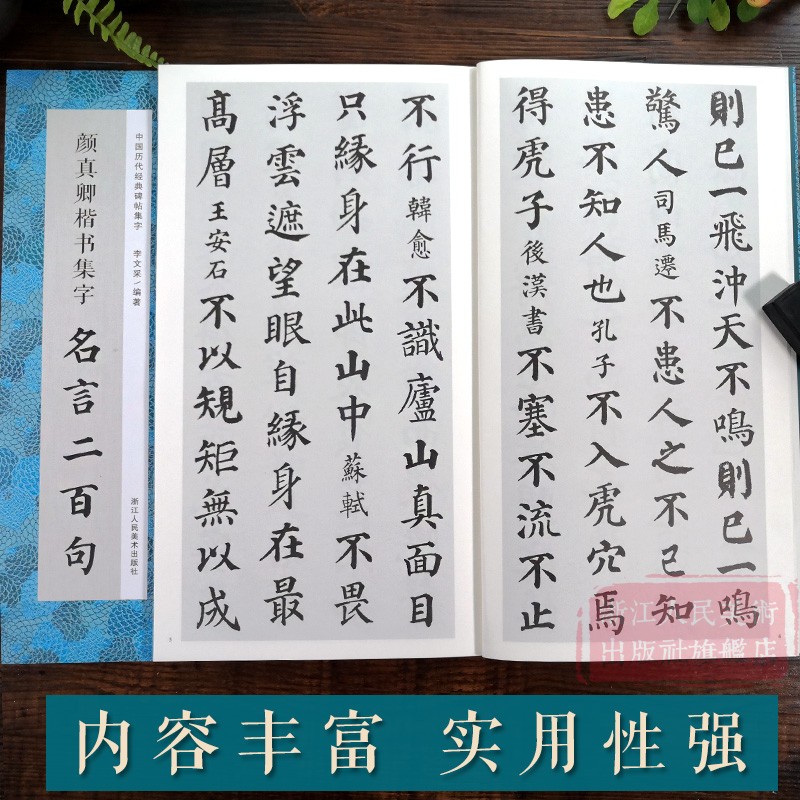 則已一飛沖天不鳴則已一鳴
驚人司馬遷不患人之不己知
患不知人也孔子不入虎穴焉
得虎子後漢書不塞不流不止
不行韓愈不識廬山真面目
只緣身在此山中蘇軾不畏
浮雲遮望眼自緣身在最
高層王安石不以規矩無以成
中国历代经典碑帖集字 李文采/编著
浙江人民美术出版社
颜真卿楷书集字 名言二百句
浙江人民美術
出版社旗艦店
内容丰富 实用性强